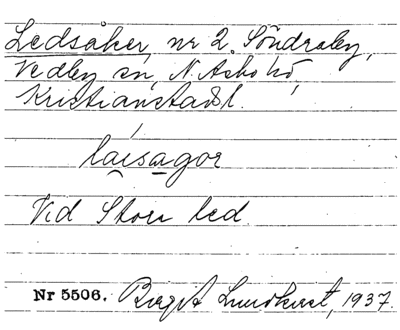 Ledsåker, nr 2. Söndraby,
Vedby sn, N. Åsbo hd,
Kristianstads l.
laisagor
Vid Stora led.
Nr 5506. Birgit Lundkvist, 1937.